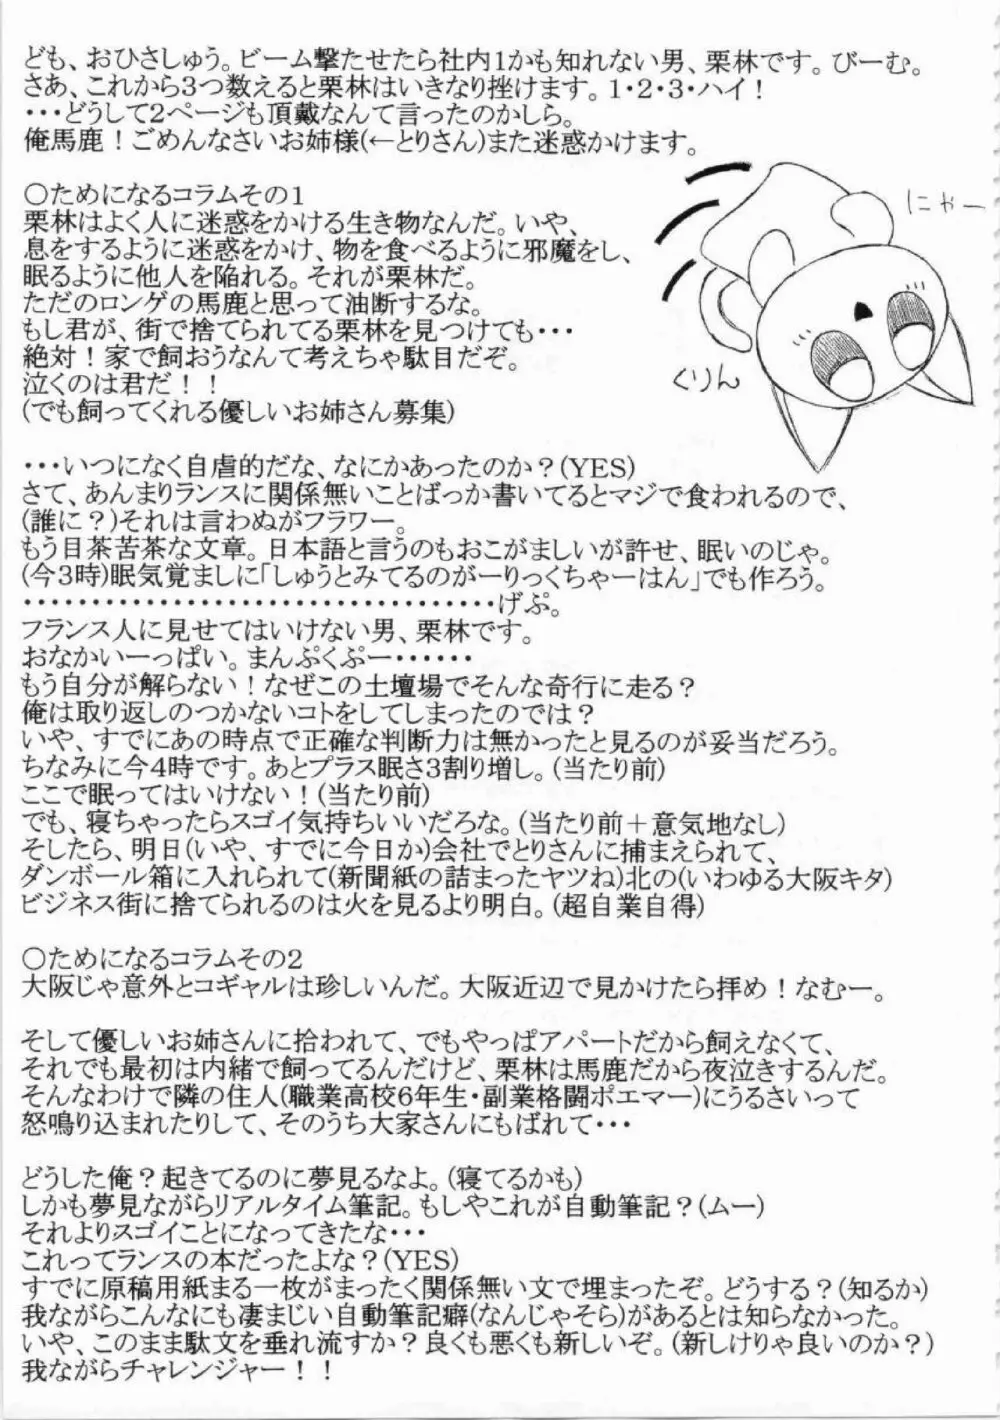 ども、おひさしゅう。ビーム撃たせたら社内1かも知れない男、栗林です。びーむ。
さあ、これから3つ数えると栗林はいきなり挫けます。1・2・3・ハイ！
・・・どうして2ページも頂戴なんて言ったのかしら。
俺馬鹿！ごめんなさいお姉様(←とりさん)また迷惑かけます。
○ためになるコラムその1
栗林はよく人に迷惑をかける生き物なんだ。いや、
息をするように迷惑をかけ、物を食べるように邪魔をし、
眠るように他人を陥れる。それが栗林だ。
ただのロンゲの馬鹿と思って油断するな。
もし君が、街で捨てられてる栗林を見つけても・・・
絶対！家で飼おうなんて考えちゃ駄目だぞ。
泣くのは君だ！！
(でも飼ってくれる優しいお姉さん募集)
にゃー
くりん
・・・いつになく自虐的だな、なにかあったのか？(YES)
さて、あんまりランスに関係無いことばっか書いてるとマジで食われるので、
(誰に？)それは言わぬがフラワー。
もう目茶苦茶な文章。日本語と言うのもおこがましいが許せ、眠いのじゃ。
(今3時)眠気覚ましに「しゅうとみてるのがーりっくちゃーはん」でも作ろう。
・・・・・・・・・・・・・・・・・・・・・・・・・・・・・・・・・・・・げぷ。
フランス人に見せてはいけない男、栗林です。
おなかいーっぱい。まんぷくぷー・・・・・・
もう自分が解らない！なぜこの土壇場でそんな奇行に走る？
俺は取り返しのつかないコトをしてしまったのでは？
いや、すでにあの時点で正確な判断力は無かったと見るのが妥当だろう。
ちなみに今4時です。あとプラス眠さ3割り増し。(当たり前)
ここで眠ってはいけない！(当たり前)
でも、寝ちゃったらスゴイ気持ちいいだろな。(当たり前＋意気地なし)
そしたら、明日(いや、すでに今日か)会社でとりさんに捕まえられて、
ダンボール箱に入れられて(新聞紙の詰まったヤツね)北の(いわゆる大阪キタ)
ビジネス街に捨てられるのは火を見るより明白。(超自業自得)
○ためになるコラムその2
大阪じゃ意外とコギャルは珍しいんだ。大阪近辺で見かけたら拝め！なむー。
そして優しいお姉さんに拾われて、でもやっぱアパートだから飼えなくて、
それでも最初は内緒で飼ってるんだけど、栗林は馬鹿だから夜泣きするんだ。
そんなわけで隣の住人(職業高校6年生・副業格闘ポエマー)にうるさいって
怒鳴り込まれたりして、そのうち大家さんにもばれて・・・
どうした俺？起きてるのに夢見るなよ。(寝てるかも)
しかも夢見ながらリアルタイム筆記。もしやこれが自動筆記？(ムー)
それよりスゴイことになってきたな・・・
これってランスの本だったよな？(YES)
すでに原稿用紙まる一枚がまったく関係無い文で埋まったぞ。どうする？(知るか)
我ながらこんなにも凄まじい自動筆記癖(なんじゃそら)があるとは知らなかった。
いや、このまま駄文を垂れ流すか？良くも悪くも新しいぞ。(新しけりゃ良いのか？)
我ながらチャレンジャー！！